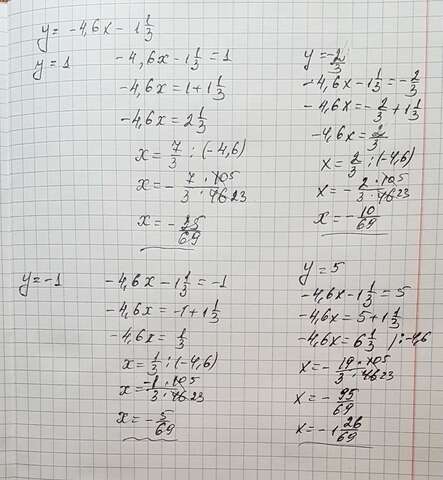 y = -4,6x - 1 1/3
y = 1
-4,6x - 1 1/3 = 1
-4,6x = 1 + 1 1/3
-4,6x = 2 1/3
x = 7/3 : (-4,6)
x = - 7 · 10 5 / 3 · 46 23
x = - 35/69
y = - 2/3
-4,6x - 1 1/3 = - 2/3
-4,6x = - 2/3 + 1 1/3
-4,6x = 2/3
x = 2/3 : (-4,6)
x = - 2 · 10 5 / 3 · 46 23
x = - 10/69
y = -1
-4,6x - 1 1/3 = -1
-4,6x = -1 + 1 1/3
-4,6x = 1/3
x = 1/3 : (-4,6)
x = -1 · 10 5 / 3 · 46 23
x = - 5/69
y = 5
-4,6x - 1 1/3 = 5
-4,6x = 5 + 1 1/3
-4,6x = 6 1/3 | : -4,6
x = - 19 · 10 5 / 3 · 46 23
x = - 95/69
x = -1 26/69